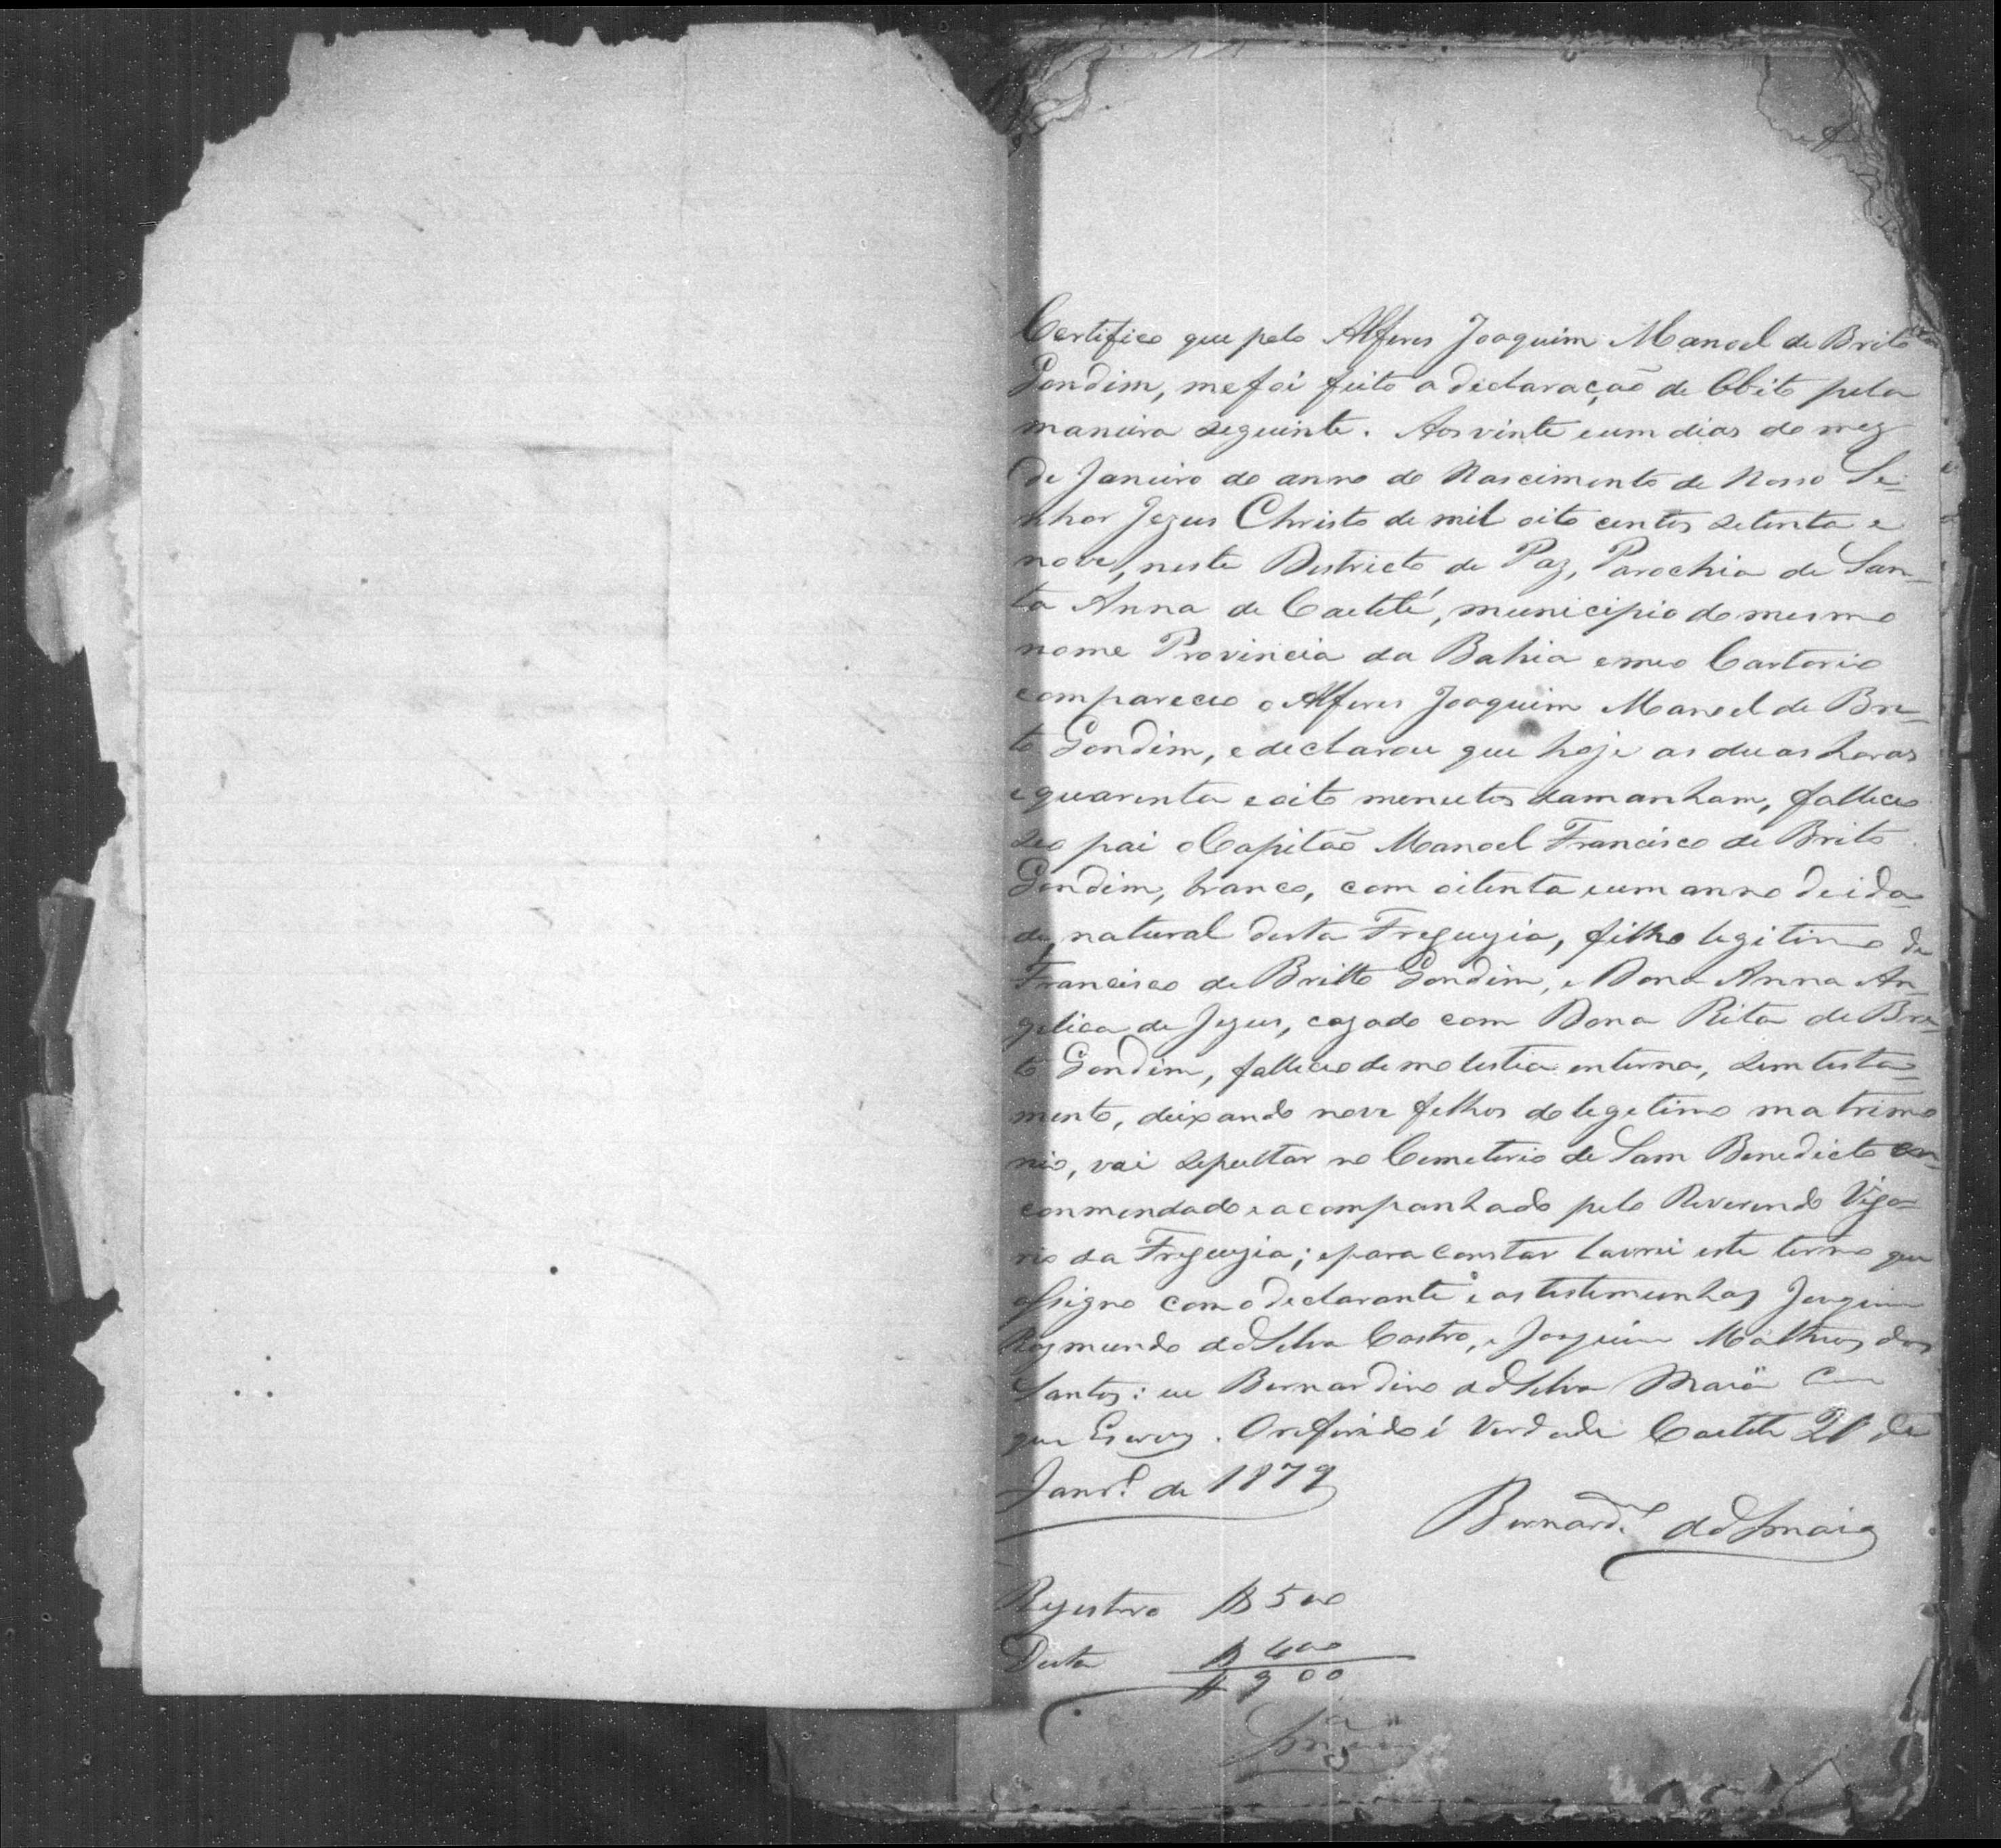 Certifico que pelo Alferes Joaquim Manoel de Brito
Gondim, me foi feito a declaração de Obito pela
maneira seguinte. Aos vinte e um dias do mez
de Janeiro do anno do Nascimento de Nosso Se-
nhor Jezus Christo de mil oito centos setenta e
nove, neste Districto de Paz, Parochia de San-
ta Anna de Caetité, municipio do mesmo
nome Provincia da Bahia e meo Cartorio
compareceo o Alferes Joaquim Manoel de Bri-
to Gondim, e declarou que hoje as duas horas
e quarenta e oito menutos da manham, falleceo
seo pai o Capitão Manoel Francisco de Brito
Gondim, branco, com oitenta e um anno de ida-
de, natural desta Freguezia, filho legitimo de
Francisco de Britto Gondim, e Dona Anna An-
gelica de Jezus, cazado com Dona Rita de Bri-
to Gondim, falleceo de molestia enterna, sem testa-
mento, deixando nove felhos de legetimo matrimo
nio, vai sepultar no Cemeterio de Sam Benedicto
conmendado e acompanhado pelo Reverendo Viga-
rio da Freguezia; e para constar lavrei este termo que
assigno com o declarante e as testemunhas Joaquim
Raymundo da Silva Castro, e Joaquim Matheus dos
Santos: eu Bernardino da Silva Maia
que Escrevy. O referido é verdade Caetite 21 de
Janr.º de 1879
Bernard.no da S Maia
Registro $500
Desta $400
$900